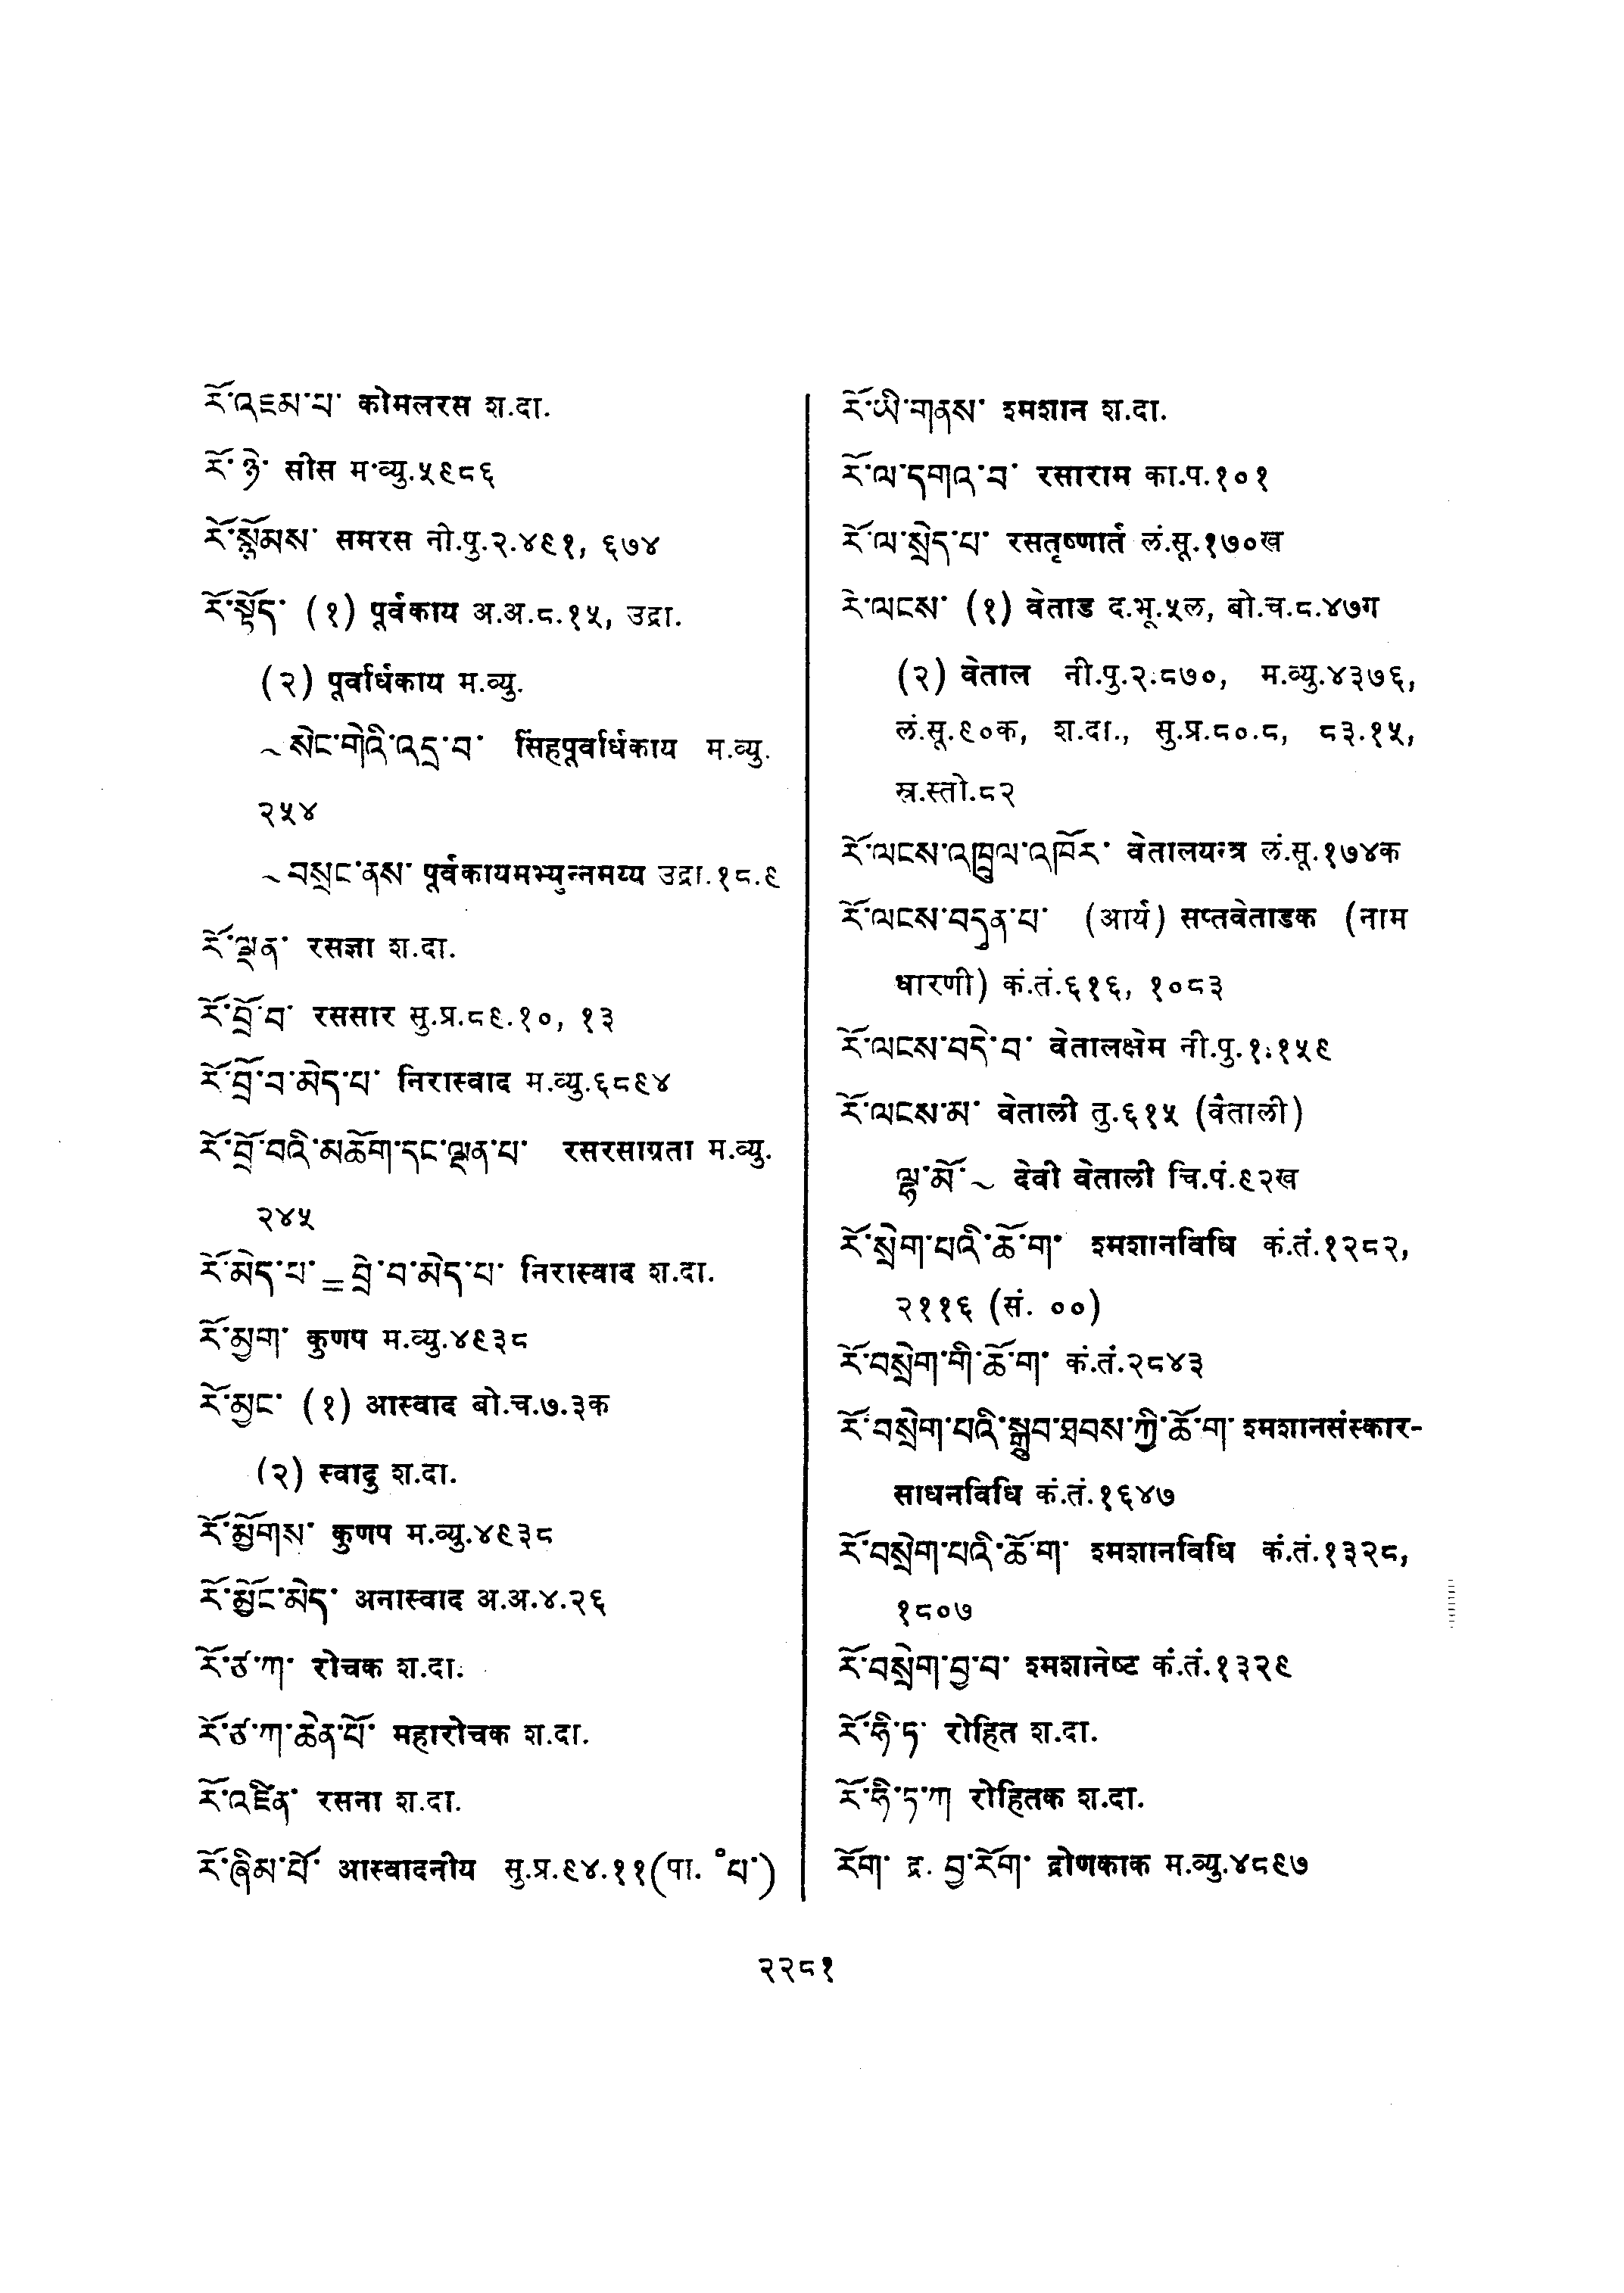 རོ་འཇམ་པ་ कोमलरस श.दा.
རོ་ཉེ་ सीस म.व्यु.५९८६
རོ་སྙོམས་ समरस नी.पु.२.४९१, ६७४
རོ་སྟོད་ (१) पूर्वकाय अ.अ.८.१५, उद्रा.
(२) पूर्वार्धकाय म.व्यु.
~སེང་གེའི་འདྲ་བ་ सिंहपूर्वार्धकाय म.व्यु.
२५४
~བསྲང་ནས་ पूर्वकायमभ्युन्नमय्य उद्रा.१८.९
རོ་ལྡན་ रसज्ञा श.दा.
རོ་བྲོ་བ་ रससार सु.प्र.८९.१०, १३
རོ་བྲོ་བ་མེད་པ་ निरास्वाद म.व्यु.६८९४
རོ་བྲོ་བའི་མཆོག་དང་ལྡན་པ་ रसरसाग्रता म.व्यु.
२४५
རོ་མེད་པ་=བྲེ་བ་མེད་པ་ निरास्वाद श.दा.
རོ་མྱག་ कुणप म.व्यु.४९३८
རོ་མྱང་ (१) आस्वाद बो.च.७.३क
(२) स्वादु श.दा.
རོ་མྱོགས་ कुणप म.व्यु.४९३८
རོ་མྱོང་མེད་ अनास्वाद अ.अ.४.२६
རོ་ཙ་ཀ་ रोचक श.दा.
རོ་ཙ་ཀ་ཆེན་པོ་ महारोचक श.दा.
རོ་འཛིན་ रसना श.दा.
རོ་ཞིམ་པོ་ आस्वादनीय सु.प्र.९४.११(पा. ॰པ་)
རོ་ཡི་གནས་ श्मशान श.दा.
རོ་ལ་དགའ་བ་ रसाराम का.प.१०१
རོ་ལ་སྲེད་པ་ रसतृष्णार्त लं.सू.१७०ख
རེ་ལངས་ (१) वेताड द.भू.५ल, बो.च.८.४७ग
(२) वेताल नी.पु.२.८७०, म.व्यु.४३७६,
लं.सू.९०क, श.दा., सु.प्र.८०.८, ८३.१५,
स्र.स्तो.८२
རོ་ལངས་འཁྲུལ་འཁོར་ वेतालयन्त्र लं.सू.१७४क
རོ་ལངས་བདུན་པ་ (आर्य) सप्तवेताडक (नाम
धारणी) कं.तं.६१६, १०८३
རོ་ལངས་བདེ་བ་ वेतालक्षेम नी.पु.१.१५९
རོ་ལངས་མ་ वेताली तु.६१५ (वैताली)
ལྷ་མོ་~ देवी वेताली चि.पं.९२ख
རོ་སྲེག་པའི་ཆོ་ག་ श्मशानविधि कं.तं.१२८२,
२११६ (सं. ००)
རོ་བསྲེག་གི་ཆོ་ག་ कं.तं.२८४३
རོ་བསྲེག་པའི་སྒྲུབ་ཐབས་ཀྱི་ཆོ་ག་ श्मशानसंस्कार-
साधनविधि कं.तं.१६४७
རོ་བསྲེག་པའི་ཆོ་ག་ श्मशानविधि कं.तं.१३२८,
१८०७
རོ་བསྲེག་བྱ་བ་ श्मशानेष्ट कं.तं.१३२९
རོ་ཧི་ཏ་ रोहित श.दा.
རོ་ཧི་ཏ་ཀ रोहितक श.दा.
རོག་ द्र. བྱ་རོག་ द्रोणकाक म.व्यु.४८९७
२२८१